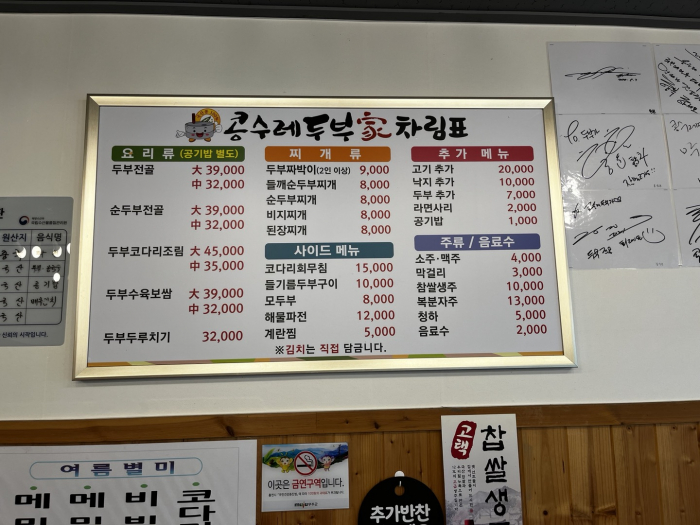 콩수레두부家 차림표
요리류 (공기밥 별도)
두부전골 大 39,000
中 32,000
순두부전골 大 39,000
中 32,000
두부코다리조림 大 45,000
中 35,000
두부수육보쌈 大 39,000
中 32,000
두부두루치기 32,000
찌개류
두부짜박이(2인 이상) 9,000
들깨순두부찌개 8,000
순두부찌개 8,000
비지찌개 8,000
된장찌개 8,000
사이드 메뉴
코다리회무침 15,000
들기름두부구이 10,000
모두부 8,000
해물파전 12,000
계란찜 5,000
※김치는 직접 담금니다.
추가 메뉴
고기 추가 20,000
낙지 추가 10,000
두부 추가 7,000
라면사리 2,000
공기밥 1,000
주류 / 음료수
소주·맥주 4,000
막걸리 3,000
찹쌀생주 10,000
복분자주 13,000
청하 5,000
음료수 2,000
원산지 음식명
여름별미
이곳은 금연구역입니다.
추가반찬
고택
찹쌀생